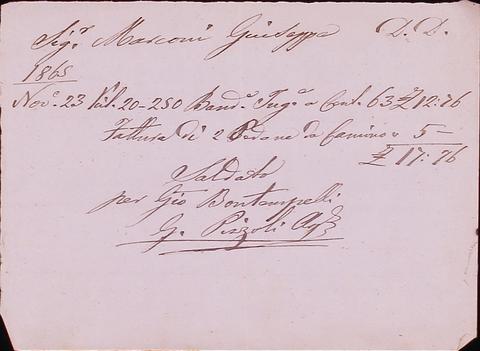 Sig.r Marconi Giuseppe D. D.
1865
Nov.e 23 20-250 Band.e Ing.e a Cent. 63 £ 12:76
Fattura di 2 Pedane da Camino " 5 —
£ 17:76
Saldato
per Gio Bontempelli
G. Pizzoli Ag.e